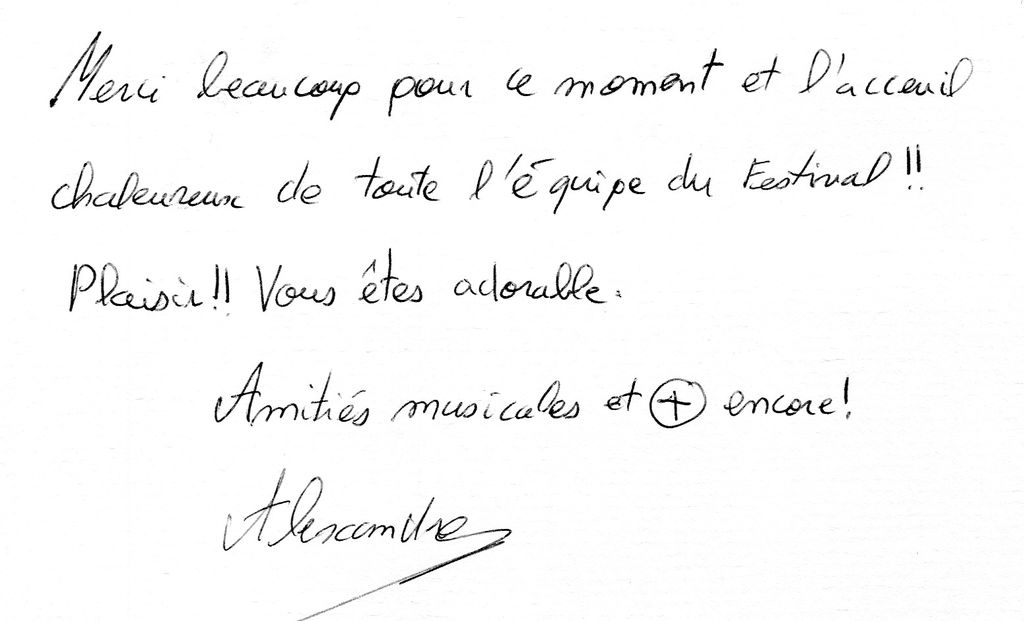 Merci beaucoup pour ce moment et l'acceuil
chaleureux de toute l'équipe du Festival !!
Plaisir !! Vous êtes adorable.
Amitiés musicales et + encore !
Alexandre